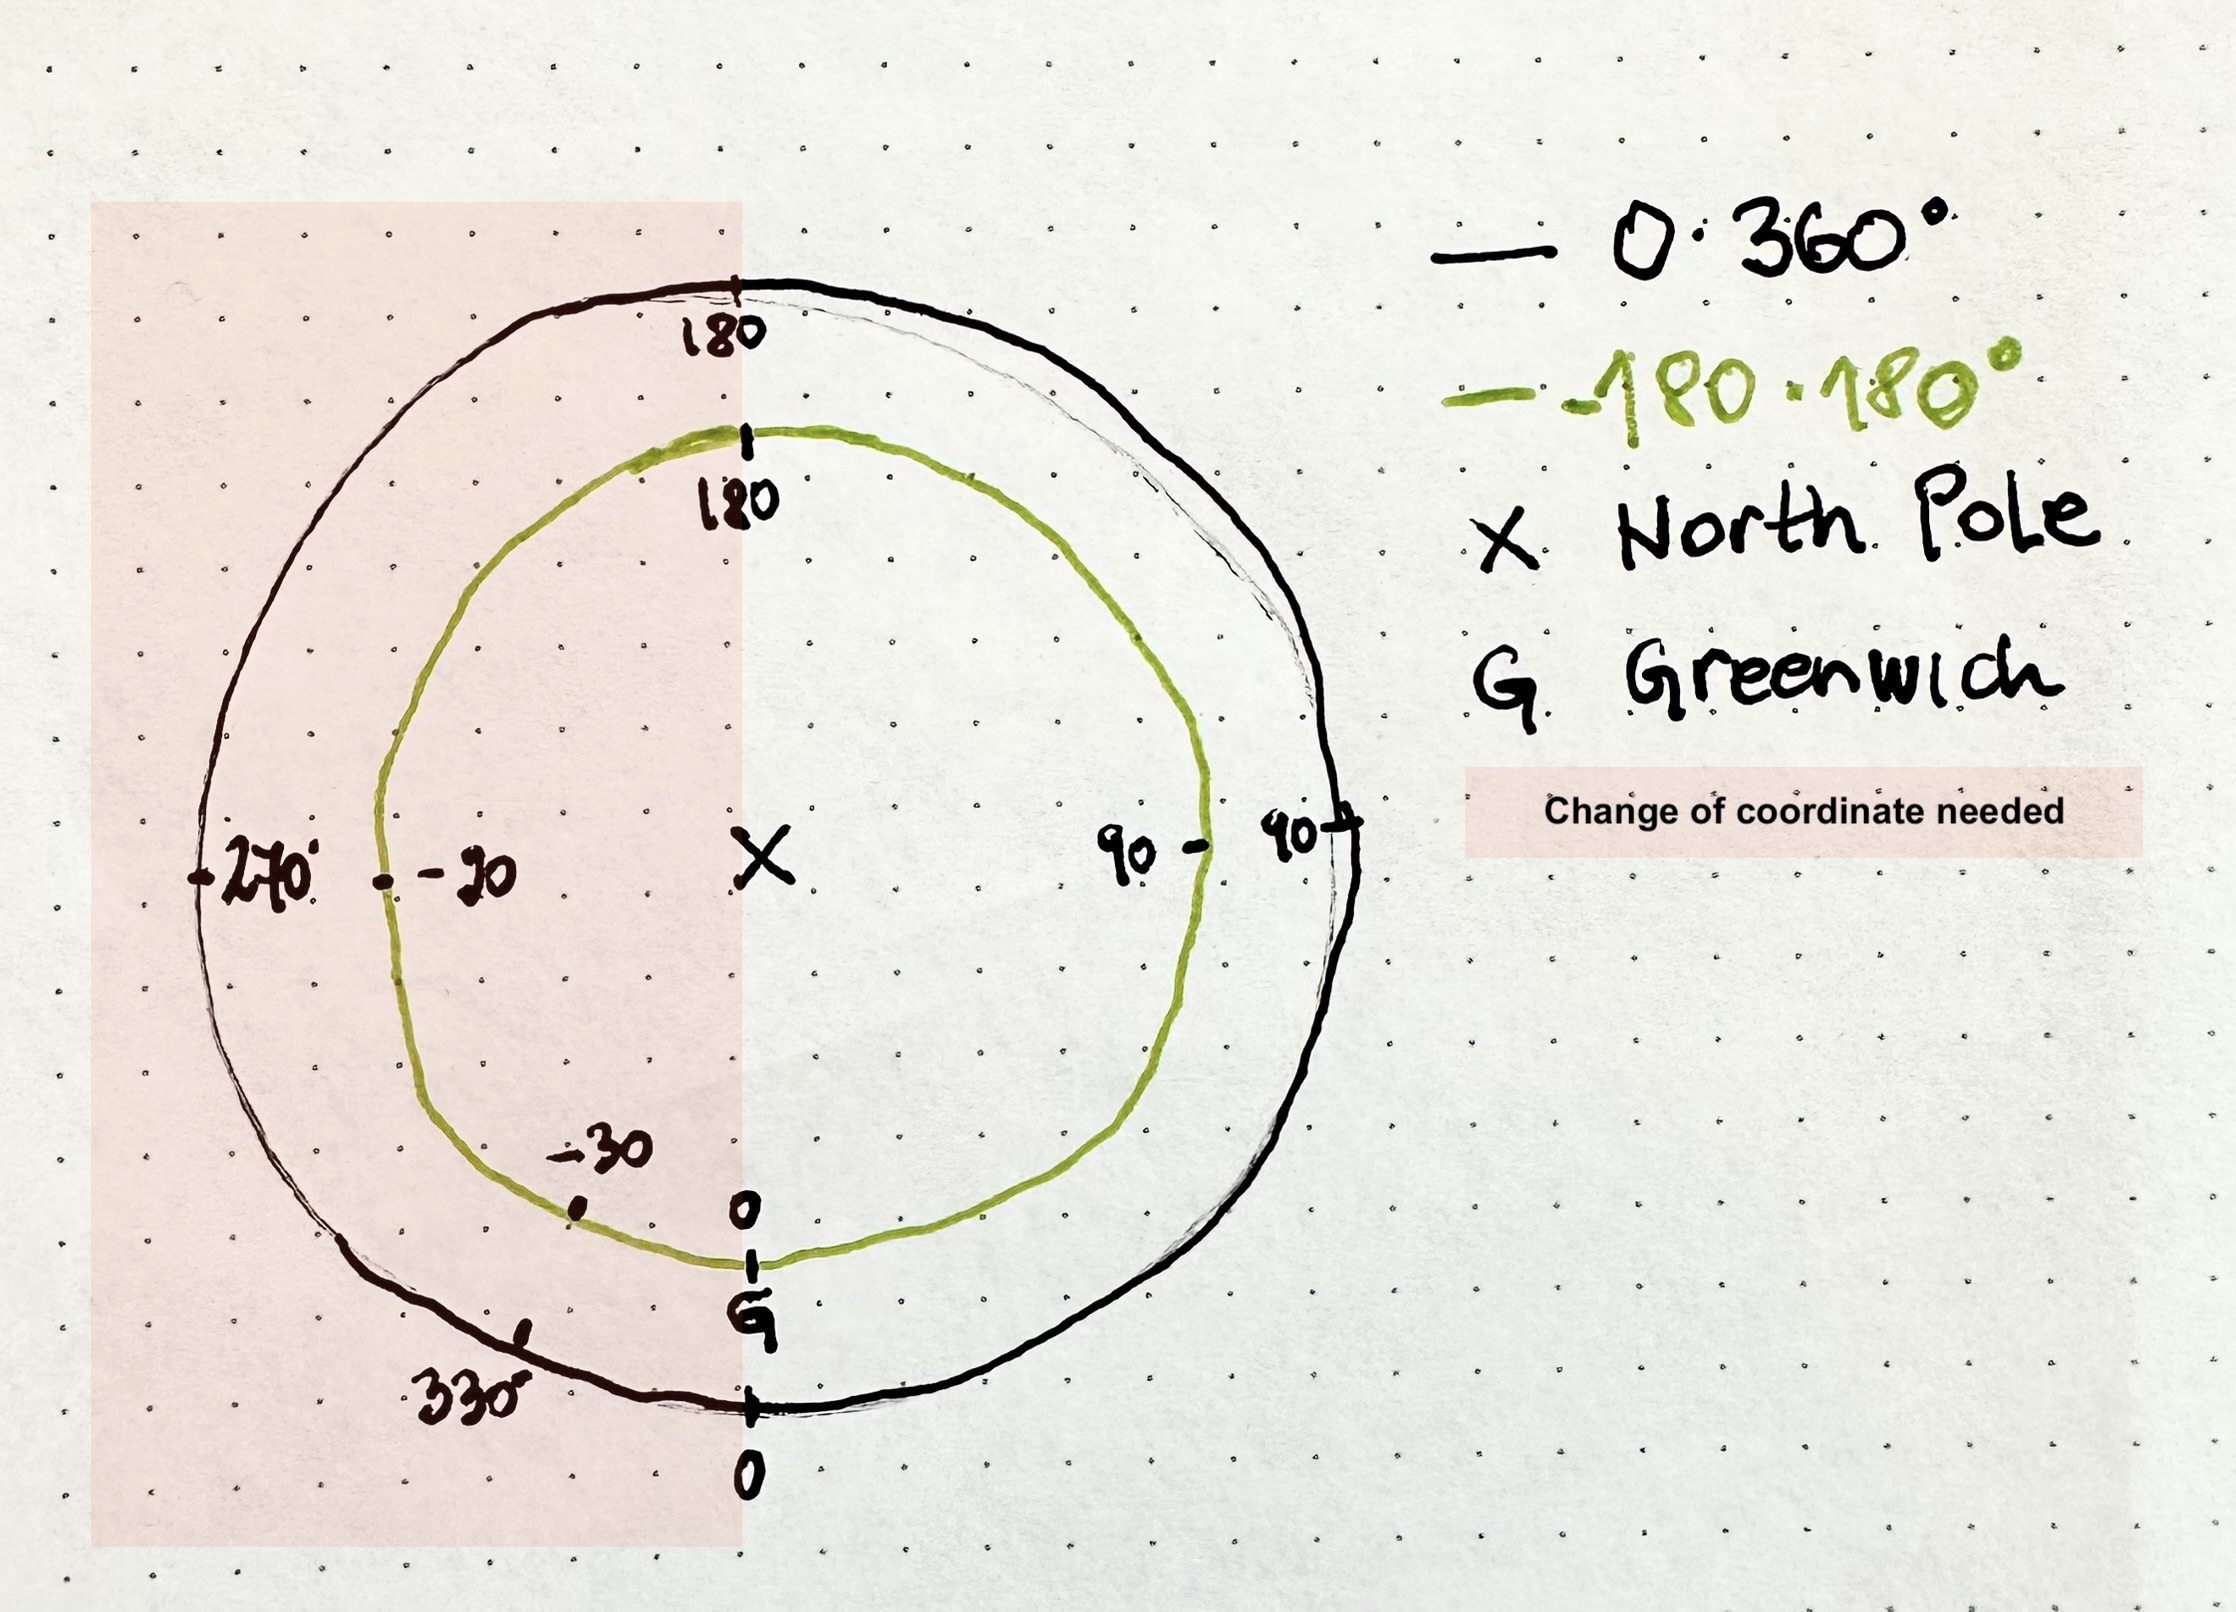 0·360°
-180·180°
180
X North Pole
180
G Greenwich
Change of coordinate needed
270°
-90
X
90
90
-30
0
G
330°
0